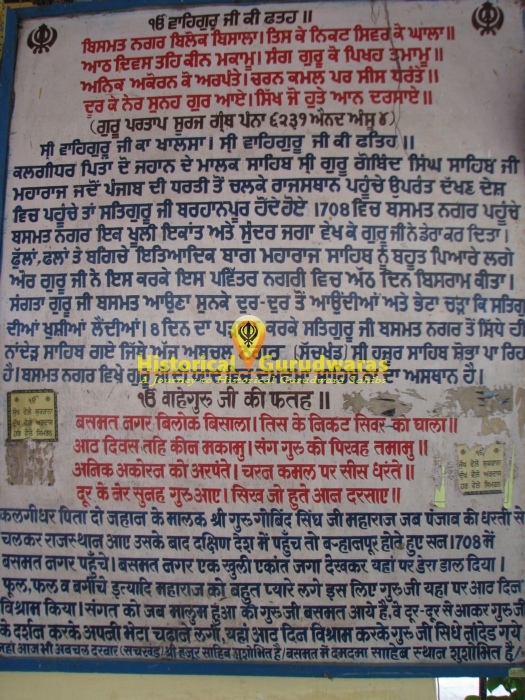 ੴ ਵਾਹਿਗੁਰੂ ਜੀ ਕੀ ਫਤਹ ॥
ਬਿਸਮਤ ਨਗਰ ਬਿਲੋਕ ਬਿਸਾਲਾ। ਤਿਸ ਕੇ ਨਿਕਟ ਸਿਵਰ ਕੋ ਘਾਲਾ॥
ਆਠ ਦਿਵਸ ਤਹਿ ਕੀਨ ਮਕਾਮੂ। ਸੰਗ ਗੁਰੂ ਕੋ ਪਿਖਹ ਤਮਾਮੂ॥
ਅਨਿਕ ਅਕੋਰਨ ਕੋ ਅਰਪੰਤੇ। ਚਰਨ ਕਮਲ ਪਰ ਸੀਸ ਧਰੰਤੇ॥
ਦੂਰ ਕੇ ਨੇਰ ਸੁਨਹ ਗੁਰ ਆਏ। ਸਿਖ ਜੋ ਹੁਤੇ ਆਨ ਦਰਸਾਏ॥
(ਗੁਰੂ ਪਰਤਾਪ ਸੂਰਜ ਗ੍ਰੰਥ ਪੰਨਾ ੬੨੩੧ ਐਨਦ ਅੰਸੂ ੪)
ਸ੍ਰੀ ਵਾਹਿਗੁਰੂ ਜੀ ਕਾ ਖਾਲਸਾ। ਸ੍ਰੀ ਵਾਹਿਗੁਰੂ ਜੀ ਕੀ ਫਤਹਿ॥
ਕਲਗੀਧਰ ਪਿਤਾ ਦੋ ਜਹਾਨ ਦੇ ਮਾਲਕ ਸਾਹਿਬ ਸ੍ਰੀ ਗੁਰੂ ਗੋਬਿੰਦ ਸਿੰਘ ਸਾਹਿਬ ਜੀ
ਮਹਾਰਾਜ ਜਦੋਂ ਪੰਜਾਬ ਦੀ ਧਰਤੀ ਤੋਂ ਚਲਕੇ ਰਾਜਸਥਾਨ ਪਹੁੰਚੇ ਉਪਰੰਤ ਦੱਖਣ ਦੇਸ਼
ਵਿਚ ਪਹੁੰਚੇ ਤਾਂ ਸਤਿਗੁਰੂ ਜੀ ਬਰਹਾਨਪੁਰ ਹੋਂਦੇ ਹੋਏ।1708 ਵਿਚ ਬਸਮਤ ਨਗਰ ਪਹੁੰਚੇ
ਬਸਮਤ ਨਗਰ ਇਕ ਖੂਲੀ ਇਕਾਂਤ ਅਤੇ ਸੁੰਦਰ ਜਗਾ ਵੇਖ ਕੇ ਗੁਰੂ ਜੀ ਨੇ ਡੇਰਾ ਕਰ ਦਿਤਾ।
ਫੁੱਲਾਂ, ਫਲਾਂ ਤੇ ਬਗਿਚੇ ਇਤਿਆਦਿਕ ਬਾਗ ਮਹਾਰਾਜ ਸਾਹਿਬ ਨੂੰ ਬਹੁਤ ਪਿਆਰੇ ਲਗੇ
ਔਰ ਗੁਰੂ ਜੀ ਨੇ ਇਸ ਕਰਕੇ ਇਸ ਪਵਿੱਤਰ ਨਗਰੀ ਵਿਚ ਅੱਠ ਦਿਨ ਬਿਸਰਾਮ ਕੀਤਾ।
ਸੰਗਤਾ ਗੁਰੂ ਜੀ ਬਸਮਤ ਆਉਣਾ ਸੁਨਕੇ ਦੂਰ-ਦੂਰ ਤੋਂ ਆਉਂਦੀਆਂ ਅਤੇ ਭੇਟਾ ਚੜ੍ਹਾ ਕਿ ਸਤਿਗੁ
ਦੀਆਂ ਖੁਸ਼ੀਆਂ ਲੈਂਦੀਆਂ। 8 ਦਿਨ ਦਾ ਕਰਕੇ ਸਤਿਗੁਰੂ ਜੀ ਬਸਮਤ ਨਗਰ ਤੋਂ ਸਿੱਧੇ ਹੀ
ਨਾਂਦੇੜ ਸਾਹਿਬ ਗਏ ਜਿੱਥੇ ਸ੍ਰੀ ਹਜੂਰ ਸਾਹਿਬ ਸ਼ੋਭਾ ਪਾ ਰਿਹ
ਹੈ। ਬਸਮਤ ਨਗਰ ਵਿਖੇ ਦਾ ਅਸਥਾਨ ਹੈ।
Historical Gurudwaras
A Journey to Historical Gurudwara Sahibs
ੴ वाहेगुरू जी की फतह ॥
बसमत नगर बिलोक बिसाला। तिस के निकट सिवर को घाला॥
आठ दिवस तहि कीन मकामु। संग गुरु को पिखह तमामु॥
अनिक अकोरन को अरपंते। चरन कमल पर सीस धरंते॥
दूर के नेर सुनह गुरु आए। सिख जो हुते आन दरसाए॥
कलगीधर पिता दो जहान के मालक श्री गुरु गोबिंद सिंघ जी महाराज जब पंजाब की धरती से
चलकर राजस्थान आए उसके बाद दक्षिण देश में पहुँच तो बऱ्हानपूर होते हुए सन 1708 में
बसमत नगर पहुँचे। बसमत नगर एक खुली एकांत जगा देखकर यहां पर डेरा डाल दिया।
फूल, फल व बगीचे इत्यादि महाराज को बहुत प्यारे लगे इस लिए गुरु जी यहा पर आठ दिन
विश्राम किया। संगत को जब मालुम हुआ की गुरु जी बसमत आये है, वे दूर-दूर से आकर गुरु जी
के दर्शन करके अपनी भेटा चढाने लगी, यहां आठ दिन विश्राम करके गुरु जी सिधे नांदेड गये
जहा आज भी अबचल दरबार (सचखंड) श्री हजूर साहिब सुशोभित है। बसमत में दमदमा साहेब स्थान सुशोभित है।